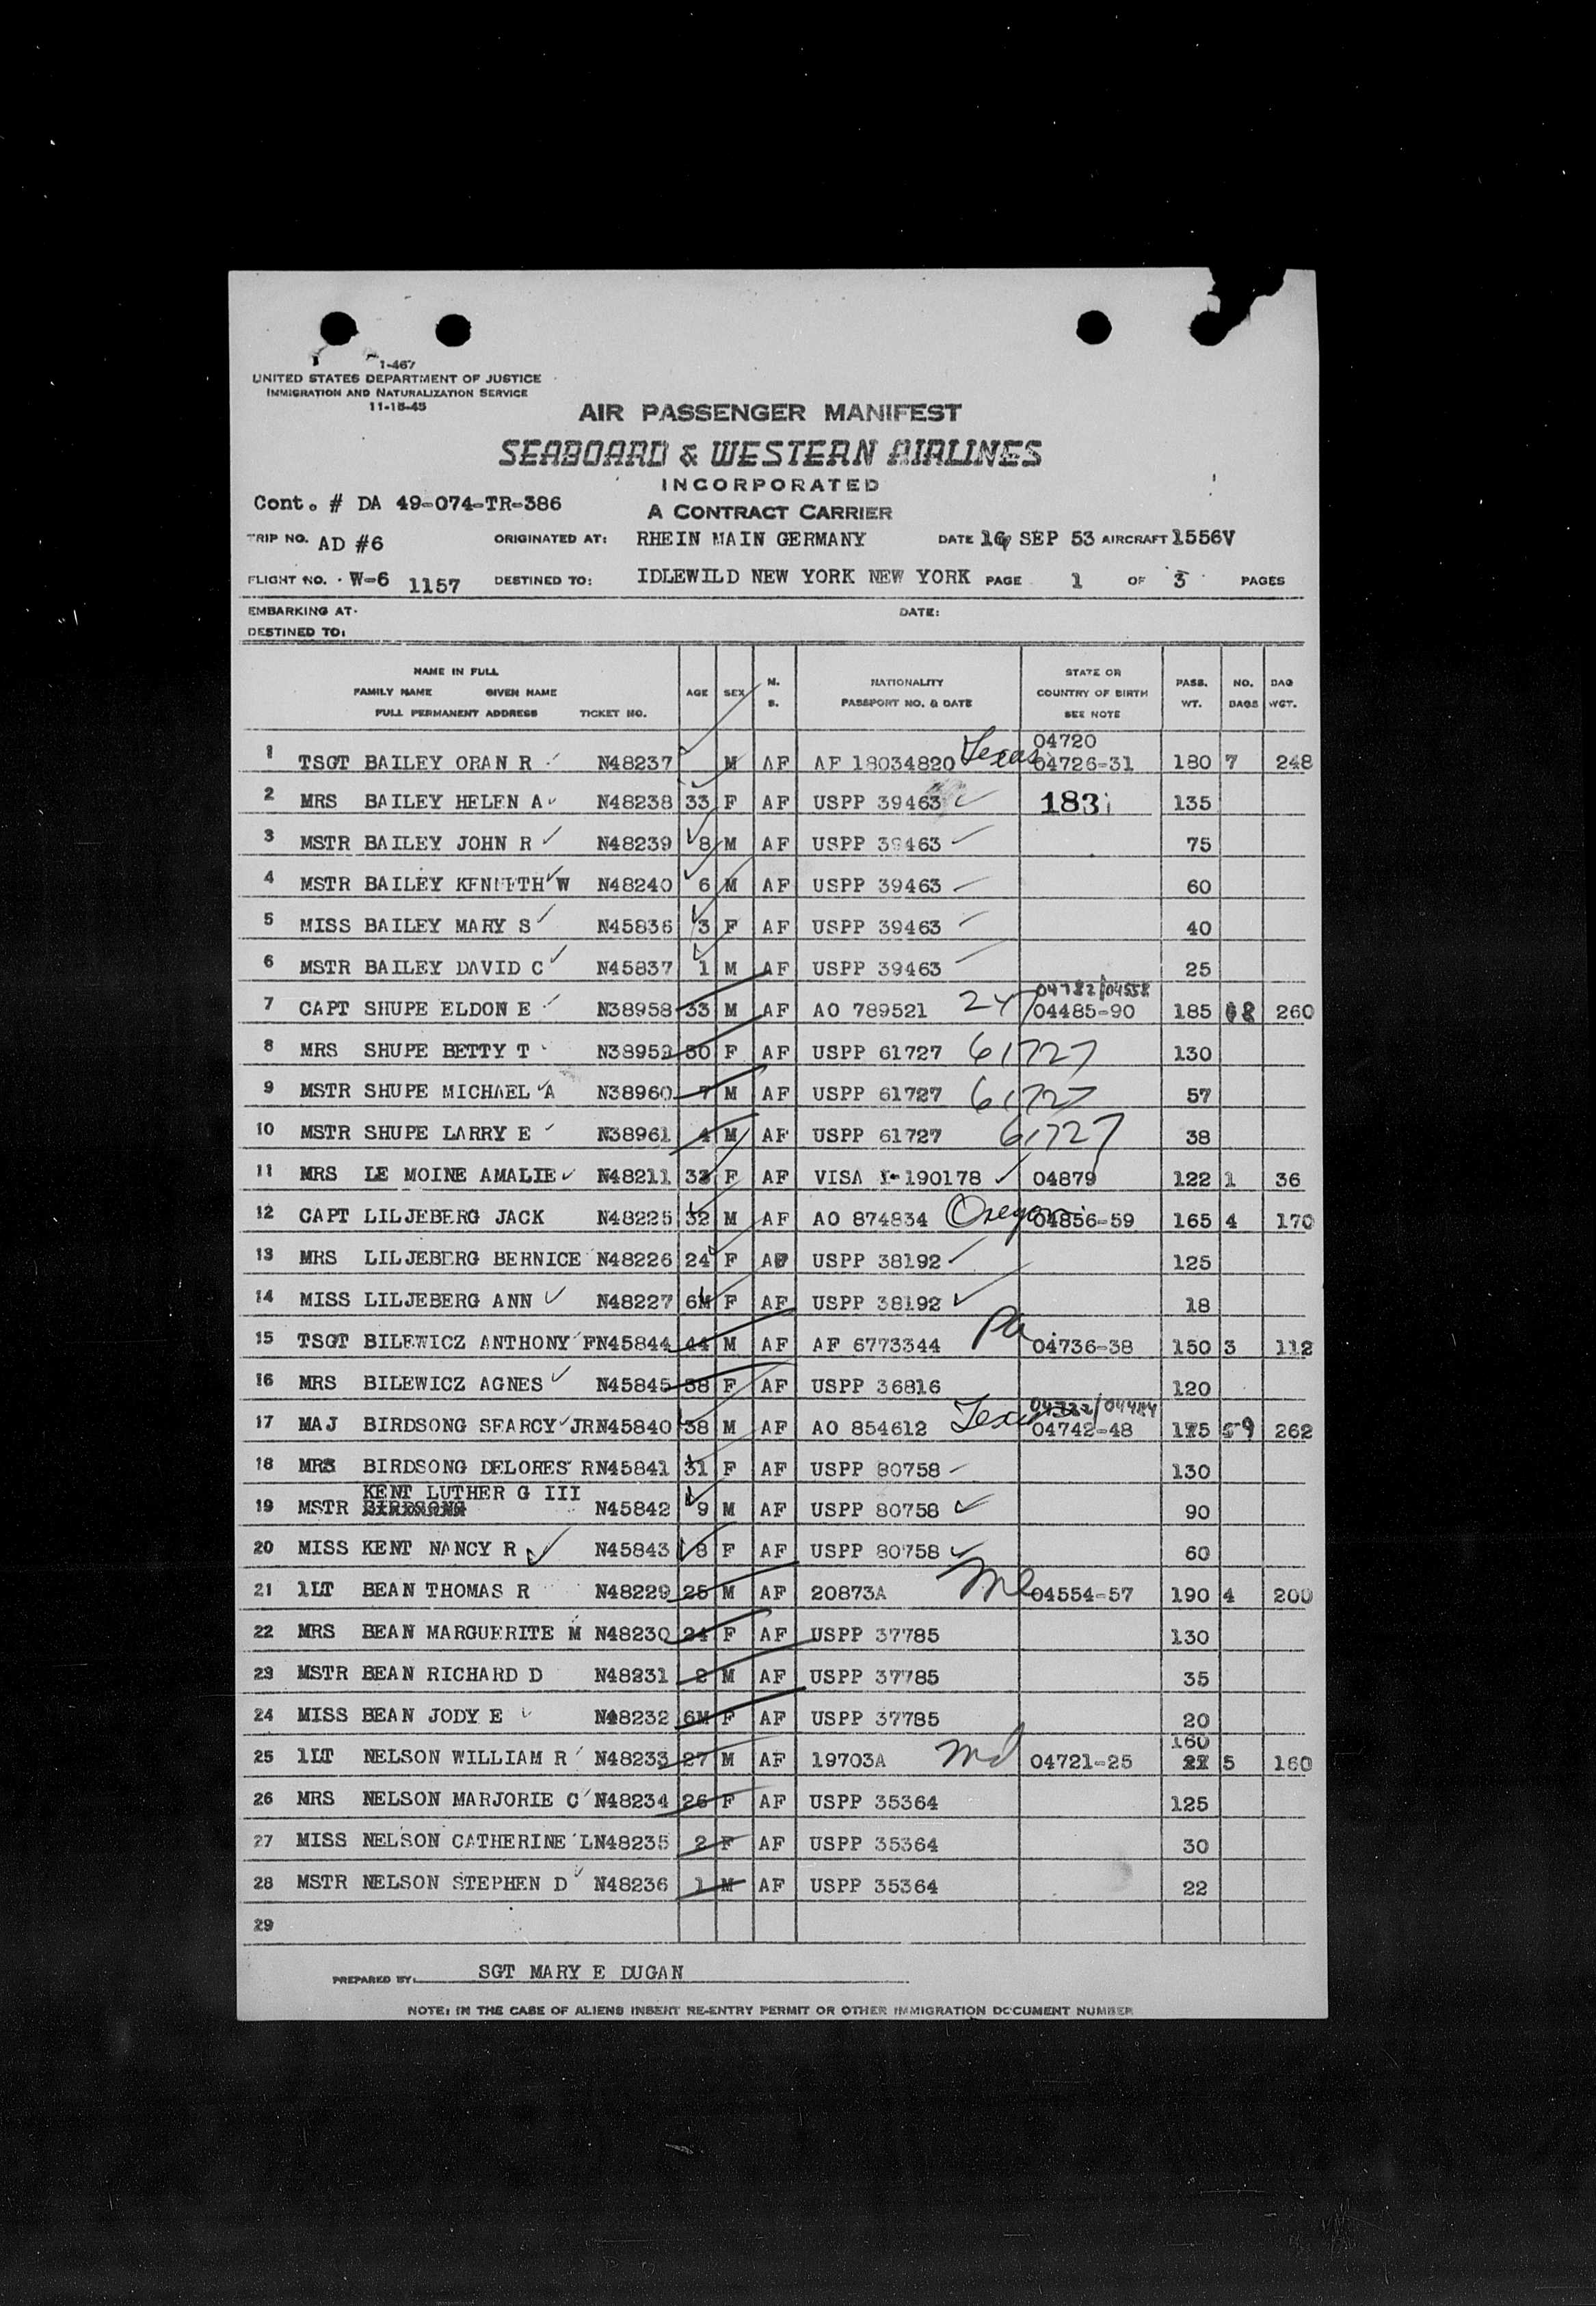 1-467
UNITED STATES DEPARTMENT OF JUSTICE
IMMIGRATION AND NATURALIZATION SERVICE
11-15-45
AIR PASSENGER MANIFEST
SEABOARD & WESTERN AIRLINES
INCORPORATED
Cont. # DA 49-074-TR-386
A CONTRACT CARRIER
TRIP NO. AD #6 ORIGINATED AT: RHEIN MAIN GERMANY DATE 16 SEP 53 AIRCRAFT 1556V
FLIGHT NO. W-6 1157 DESTINED TO: IDLEWILD NEW YORK NEW YORK PAGE 1 OF 3 PAGES
EMBARKING AT: DATE:
DESTINED TO:
NAME IN FULL
FAMILY NAME GIVEN NAME
FULL PERMANENT ADDRESS TICKET NO.
AGE SEX M. S.
NATIONALITY
PASSPORT NO. & DATE
STATE OR
COUNTRY OF BIRTH
SEE NOTE
PASS. WT.
NO. BAGS
BAG WGT.
04720
1 TSGT BAILEY ORAN R N48237 M AF AF 18034820 Texas 04726-31 180 7 248
2 MRS BAILEY HELEN A N48238 33 F AF USPP 39463 183 135
3 MSTR BAILEY JOHN R N48239 8 M AF USPP 39463 75
4 MSTR BAILEY KENNETH W N48240 6 M AF USPP 39463 60
5 MISS BAILEY MARY S N45836 3 F AF USPP 39463 40
6 MSTR BAILEY DAVID C N45837 1 M AF USPP 39463 25
04782/04558
7 CAPT SHUPE ELDON E N38958 33 M AF AO 789521 247 04485-90 185 8 260
8 MRS SHUPE BETTY T N38959 30 F AF USPP 61727 61727 130
9 MSTR SHUPE MICHAEL A N38960 7 M AF USPP 61727 61727 57
10 MSTR SHUPE LARRY E N38961 4 M AF USPP 61727 61727 38
11 MRS LE MOINE AMALIE N48211 33 F AF VISA I-190178 04879 122 1 36
12 CAPT LILJEBERG JACK N48225 32 M AF AO 874834 Oregon 04856-59 165 4 170
13 MRS LILJEBERG BERNICE N48226 24 F AF USPP 38192 125
14 MISS LILJEBERG ANN N48227 6M F AF USPP 38192 18
15 TSGT BILEWICZ ANTHONY F N45844 44 M AF AF 6773344 Pa 04736-38 150 3 112
16 MRS BILEWICZ AGNES N45845 38 F AF USPP 36816 120
04484
17 MAJ BIRDSONG SEARCY JR N45840 38 M AF AO 854612 Texas 04742-48 175 9 262
18 MRS BIRDSONG DELORES R N45841 31 F AF USPP 80758 130
KENT LUTHER G III
19 MSTR BIRDSONG N45842 9 M AF USPP 80758 90
20 MISS KENT NANCY R N45843 8 F AF USPP 80758 60
21 1LT BEAN THOMAS R N48229 25 M AF 20873A Me 04554-57 190 4 200
22 MRS BEAN MARGUERITE M N48230 24 F AF USPP 37785 130
23 MSTR BEAN RICHARD D N48231 2 M AF USPP 37785 35
24 MISS BEAN JODY E N48232 6M F AF USPP 37785 20
160
25 1LT NELSON WILLIAM R N48233 27 M AF 19703A Md 04721-25 22 5 160
26 MRS NELSON MARJORIE C N48234 26 F AF USPP 35364 125
27 MISS NELSON CATHERINE L N48235 2 F AF USPP 35364 30
28 MSTR NELSON STEPHEN D N48236 1 M AF USPP 35364 22
29
PREPARED BY: SGT MARY E DUGAN
NOTE: IN THE CASE OF ALIENS INSERT RE-ENTRY PERMIT OR OTHER IMMIGRATION DOCUMENT NUMBER